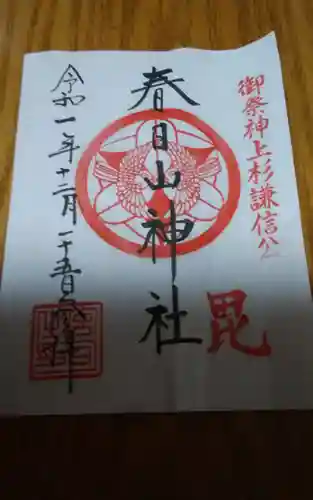 御祭神上杉謙信公
毘
春日山神社
令和一年十二月二十五日奉拝